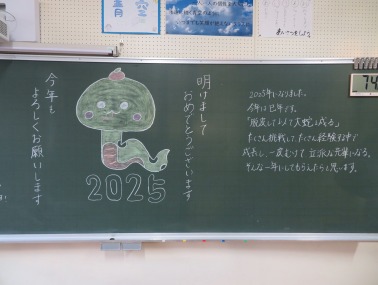 明けまして
おめでとうございます
今年も
よろしくお願いします
2025
2025年になりました。
今年は巳年です。
「脱皮して以って大蛇と成る」
たくさん挑戦して、たくさん経験する中で
成長し、一皮むけて立派な先輩になる。
そんな一年にしてもらえたらと思います。